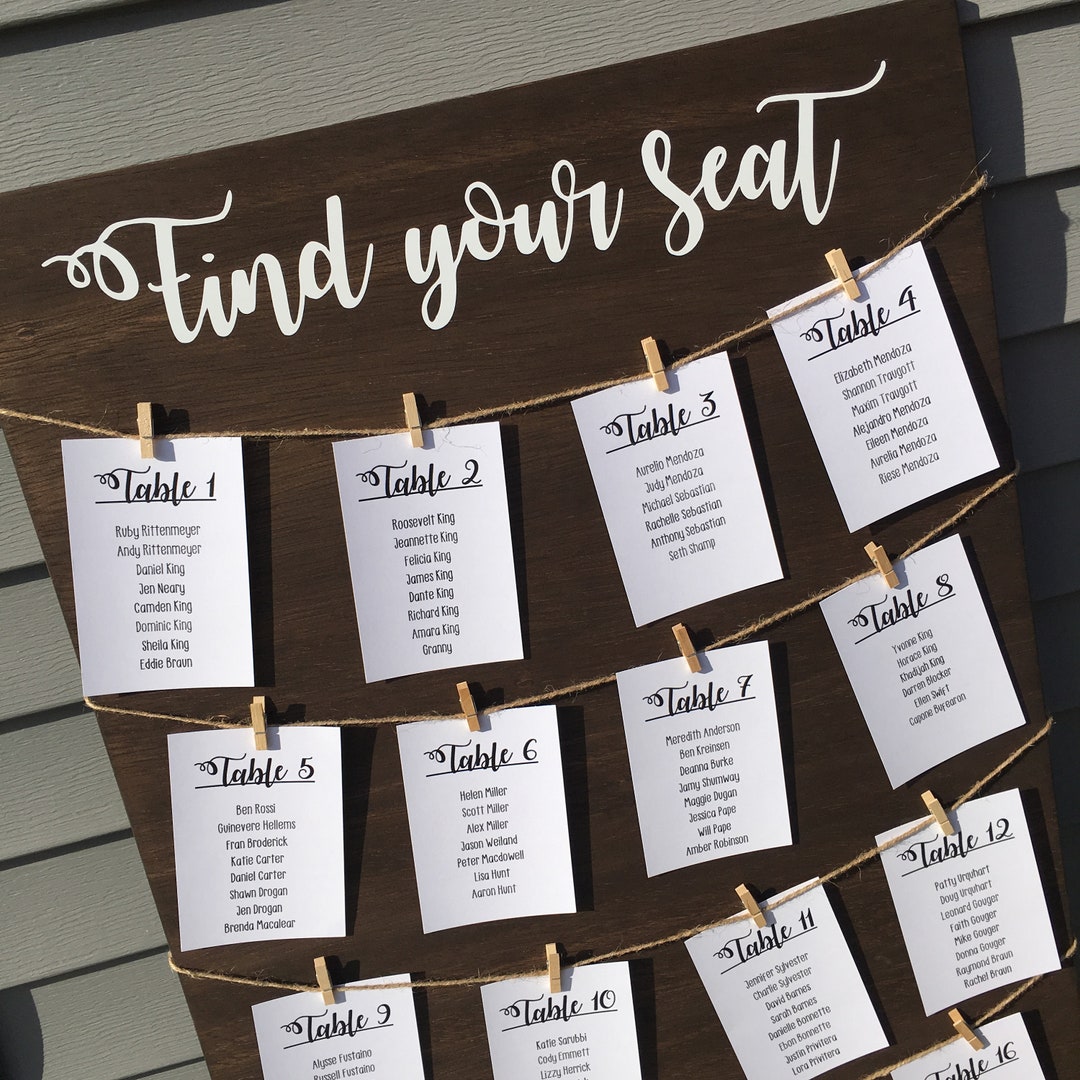 Find your Seat
Table 1
Ruby Rittenmeyer
Andy Rittenmeyer
Daniel King
Jen Neary
Camden King
Dominic King
Sheila King
Eddie Braun
Table 2
Roosevelt King
Jeannette King
Felicia King
James King
Dante King
Richard King
Amara King
Granny
Table 3
Aurelio Mendoza
Judy Mendoza
Michael Sebastian
Rachelle Sebastian
Anthony Sebastian
Seth Shamp
Table 4
Elizabeth Mendoza
Shannon Traugott
Maxim Traugott
Alejandro Mendoza
Eileen Mendoza
Aurelia Mendoza
Riese Mendoza
Table 5
Ben Rossi
Guinevere Hellems
Fran Broderick
Katie Carter
Daniel Carter
Shawn Drogan
Jen Drogan
Brenda Macalear
Table 6
Helen Miller
Scott Miller
Alex Miller
Jason Weiland
Peter Macdowell
Lisa Hunt
Aaron Hunt
Table 7
Meredith Anderson
Ben Kreinsen
Deanna Burke
Jamy Shumway
Maggie Dugan
Jessica Pape
Will Pape
Amber Robinson
Table 8
Yvonne King
Horace King
Khadijah King
Darren Blocker
Ellen Swift
Capone Bufearon
Table 9
Alysse Fustaino
Russell Fustaino
Table 10
Katie Sarubbi
Cody Emmett
Lizzy Herrick
Table 11
Jennifer Sylvester
Charlie Sylvester
David Barnes
Sarah Barnes
Danielle Bonnette
Ebon Bonnette
Justin Privitera
Lora Privitera
Table 12
Patty Urquhart
Doug Urquhart
Leonard Gouger
Faith Gouger
Mike Gouger
Donna Gouger
Raymond Braun
Rachel Braun
Table 16